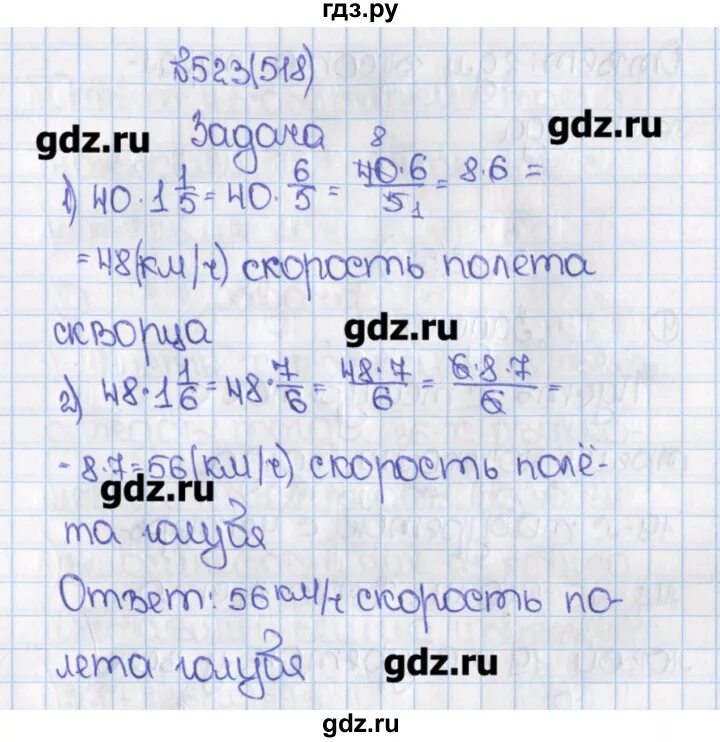 гдз.ру
№523(518)
Задача
gdz.ru
gdz.ru
1) 40·1 1/5 = 40· 6/5 = 40·6/5 = 8·6 =
8
1
= 48(км/ч) скорость полета
скворца
gdz.ru
2) 48·1 1/6 = 48· 7/6 = 48·7/6 = 6·8·7/6 =
- 8·7=56(км/ч) скорость полё-
gdz.ru
та голубя
Ответ: 56 км/ч скорость по-
лета голубя
gdz.ru
gdz.ru